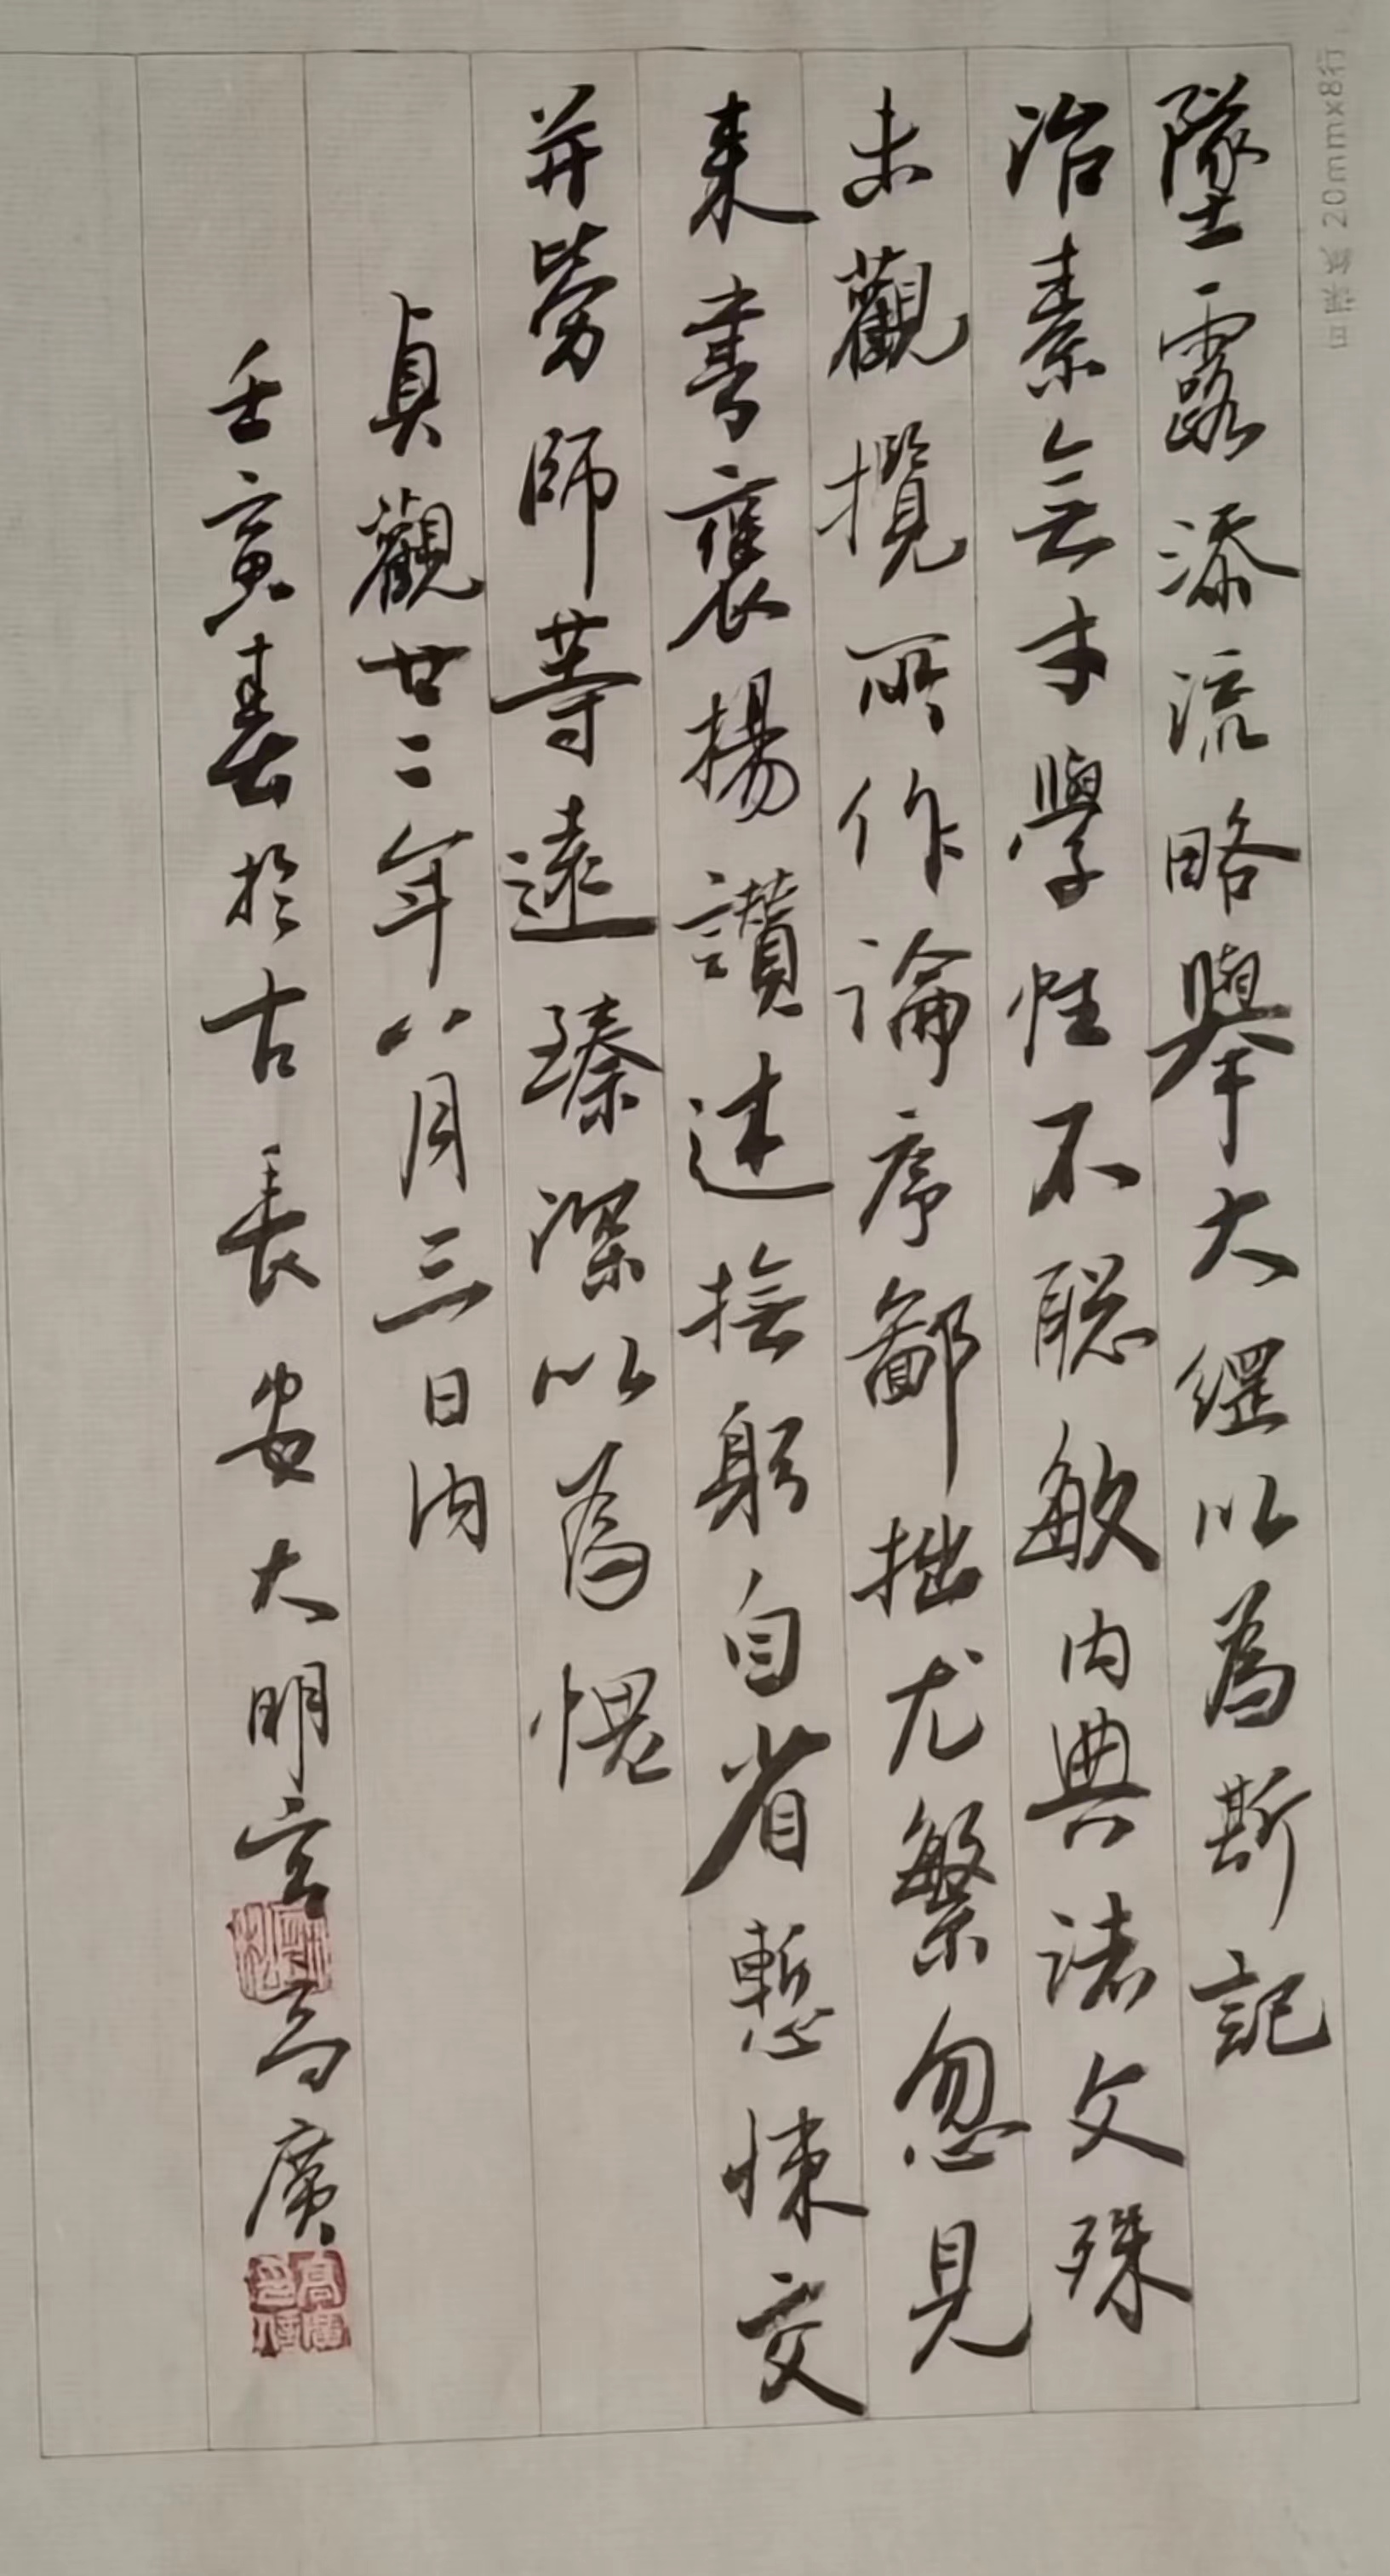 墜露添流略舉大綱以為斯記
治素無才學性不聰敏内典諸文殊
未觀攬所作論序鄙拙尤繁忽見
来書褒揚讃述撫躬自省慙悚交
并勞師等遠臻深以為愧
貞觀廿二年八月三日内
壬寅春於古長安大明宫高廣
20mmx8行